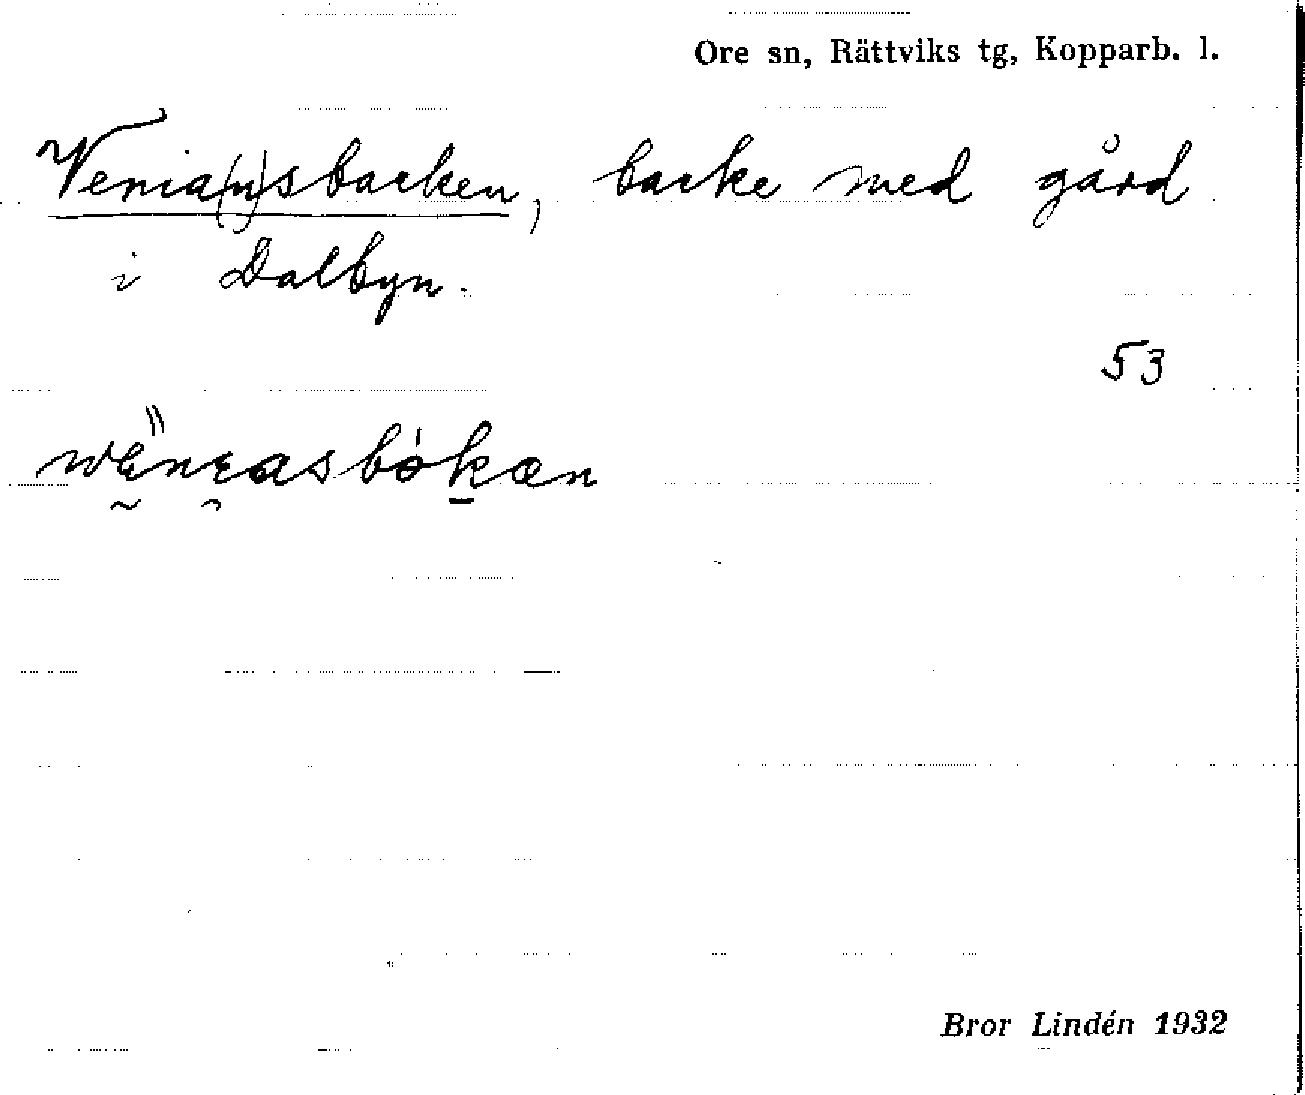 Ore sn, Rättviks tg, Kopparb. l.
Venia(n)sbacken, backe med gård
i Dalbyn.
53
Bror Lindén 1932